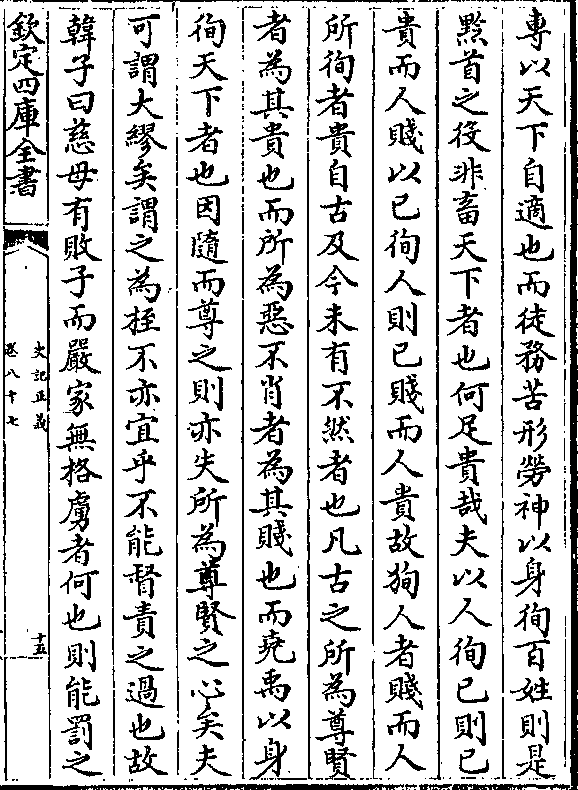 專以天下自適也而徒務苦形勞神以身徇百姓則是
黔首之役非畜天下者也何足貴哉夫以人徇已則已
貴而人賤以已徇人則已賤而人貴故狥人者賤而人
所徇者貴自古及今未有不然者也凡古之所為尊賢
者為其貴也而所為惡不肖者為其賤也而堯禹以身
徇天下者也因隨而尊之則亦失所為尊賢之心矣夫
可謂大繆矣謂之為桎不亦宜乎不能督責之過也故
韓子曰慈母有敗子而嚴家無格虜者何也則能罰之
欽定四庫全書
史記正義
卷八十七
十五